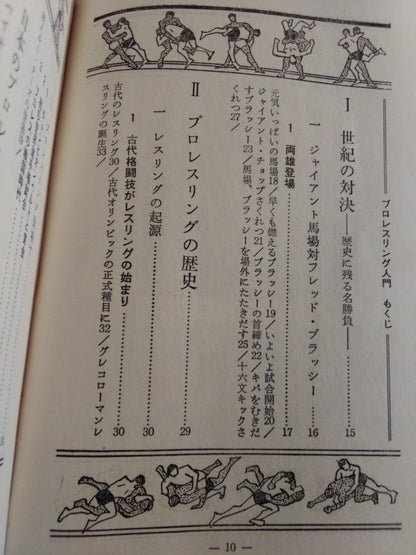 プロレスリング入門　もくじ
Ⅰ　世紀の対決―歴史に残る名勝負―……………15
一　ジャイアント馬場対フレッド・ブラッシー……16
1　両雄登場……………17
元気いっぱいの馬場18／早くも燃えるブラッシー19／いよいよ試合開始20／
ジャイアント・チョップさくれつ21／ブラッシーの首締め22／キバをむきだ
すブラッシー23／馬場、ブラッシーを場外にたたきだす25／十六文キックさ
くれつ27／
Ⅱ　プロレスリングの歴史……………29
一　レスリングの起源……………30
1　古代格闘技がレスリングの始まり……………30
古代のレスリング30／古代オリンピックの正式種目に32／グレコローマンレ
スリングの誕生33／
― 10 ―